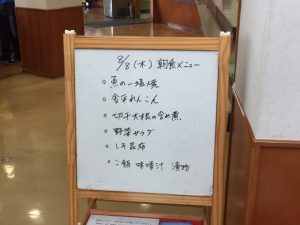 3/8(木) 朝食メニュー
○ 魚の一塩焼
○ 金平れんこん
○ 切干大根の含め煮
○ 野菜サラダ
○ しそ昆布
○ ご飯 味噌汁 漬物